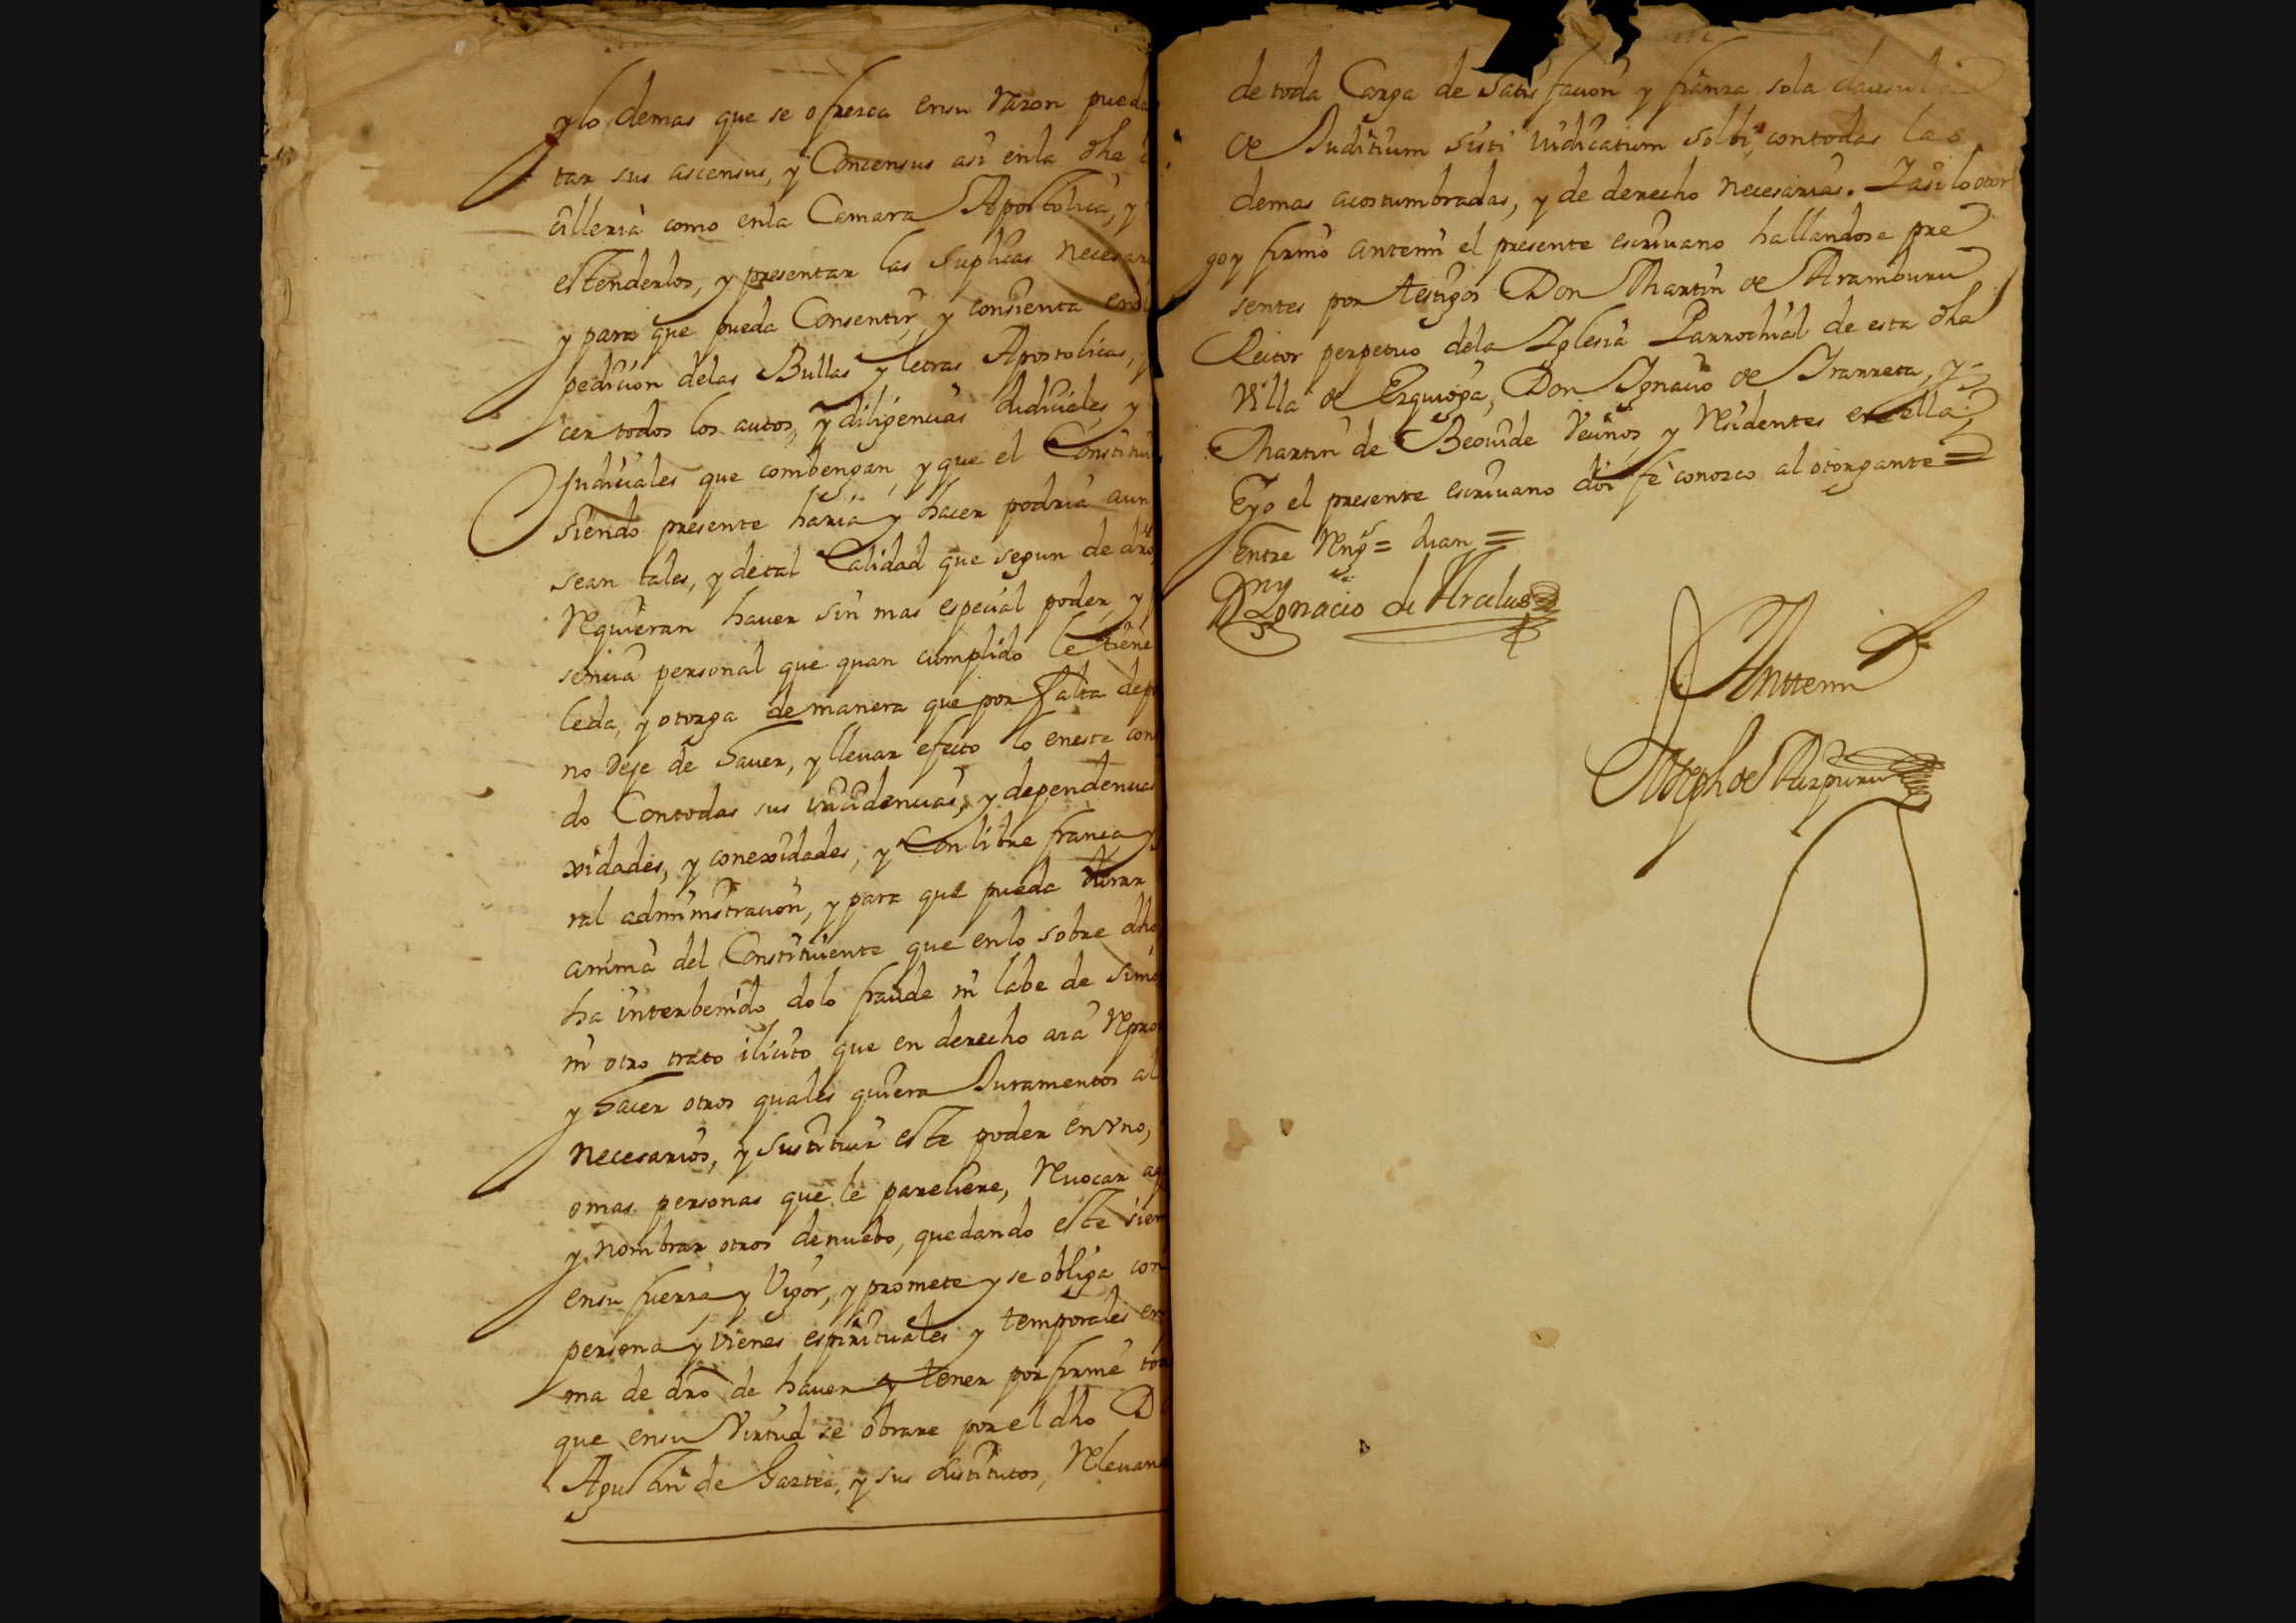 ylo demas que se ofresca ensu Razon pueda
tar sus ascensus, y Concensus asi enla dha
cilleria como enla Camara Apostolica, y
estenderlos, y presentar las suplicas necesar
y para que pueda Consentir y consienta en
pedicion delas Bullas y letras Apostolicas,
cer todos los autos, y diligencias Judiciales, y
Judiciales que combengan, y que el Constitu
siendo presente haria y hacer podria aun
sean tales, y detal Calidad que segun de dro
Requieran hauer sin mas especial poder, y
sencia personal que quan cumplido le tiene
leda, y otorga demanera que por falta depo
no deje de hauer, y lleuar efecto lo eneste con
do Contodas sus incidencias, y dependencias
xidades, y conexidades, y Con libre franca y
ral administracion, y para que pueda Jurar
anima del Constituiente que enlo sobre dho
ha interbenido dolo fraude ni labe de simo
ni otro trato ilicito que en derecho ara Repro
y hacer otros quales quiera Juramentos al
necesarios, y sustituir este poder en vno,
omas personas que le pareciere, Reuocar
y nombrar otros denuebo, quedando este siem
ensu fuerza y Vigor, y promete y se obliga con
persona y vienes espirituales y temporales en
ma de dro de hauer y tener por firme to
que ensu Virtud se obrare por el dho D
Agustin de Gartea, y sus sustitutos, Releuan
de toda Carga de satis facion y fianza sola clausula
de Juditium sisti iudicatum solbi, contodas las
demas acostumbradas, y de derecho necesarias. Yasilo otor
go y firmo antemi el presente escriuano hallandose pre
sentes por testigos Don Martin de Aramburu
Rector perpetuo dela Iglesia Parrochial de esta dha
Villa de Ezquioga, Don Ignacio de Iranneta, y
Martin de Beouide Vecinos y Residentes en ella,
Eyo el presente escriuano doi fe conozco al otorgante =
Entre Rengs = Juan =
Dn Ignacio de Arcelus
Anttemi
Joseph de Aizpuru